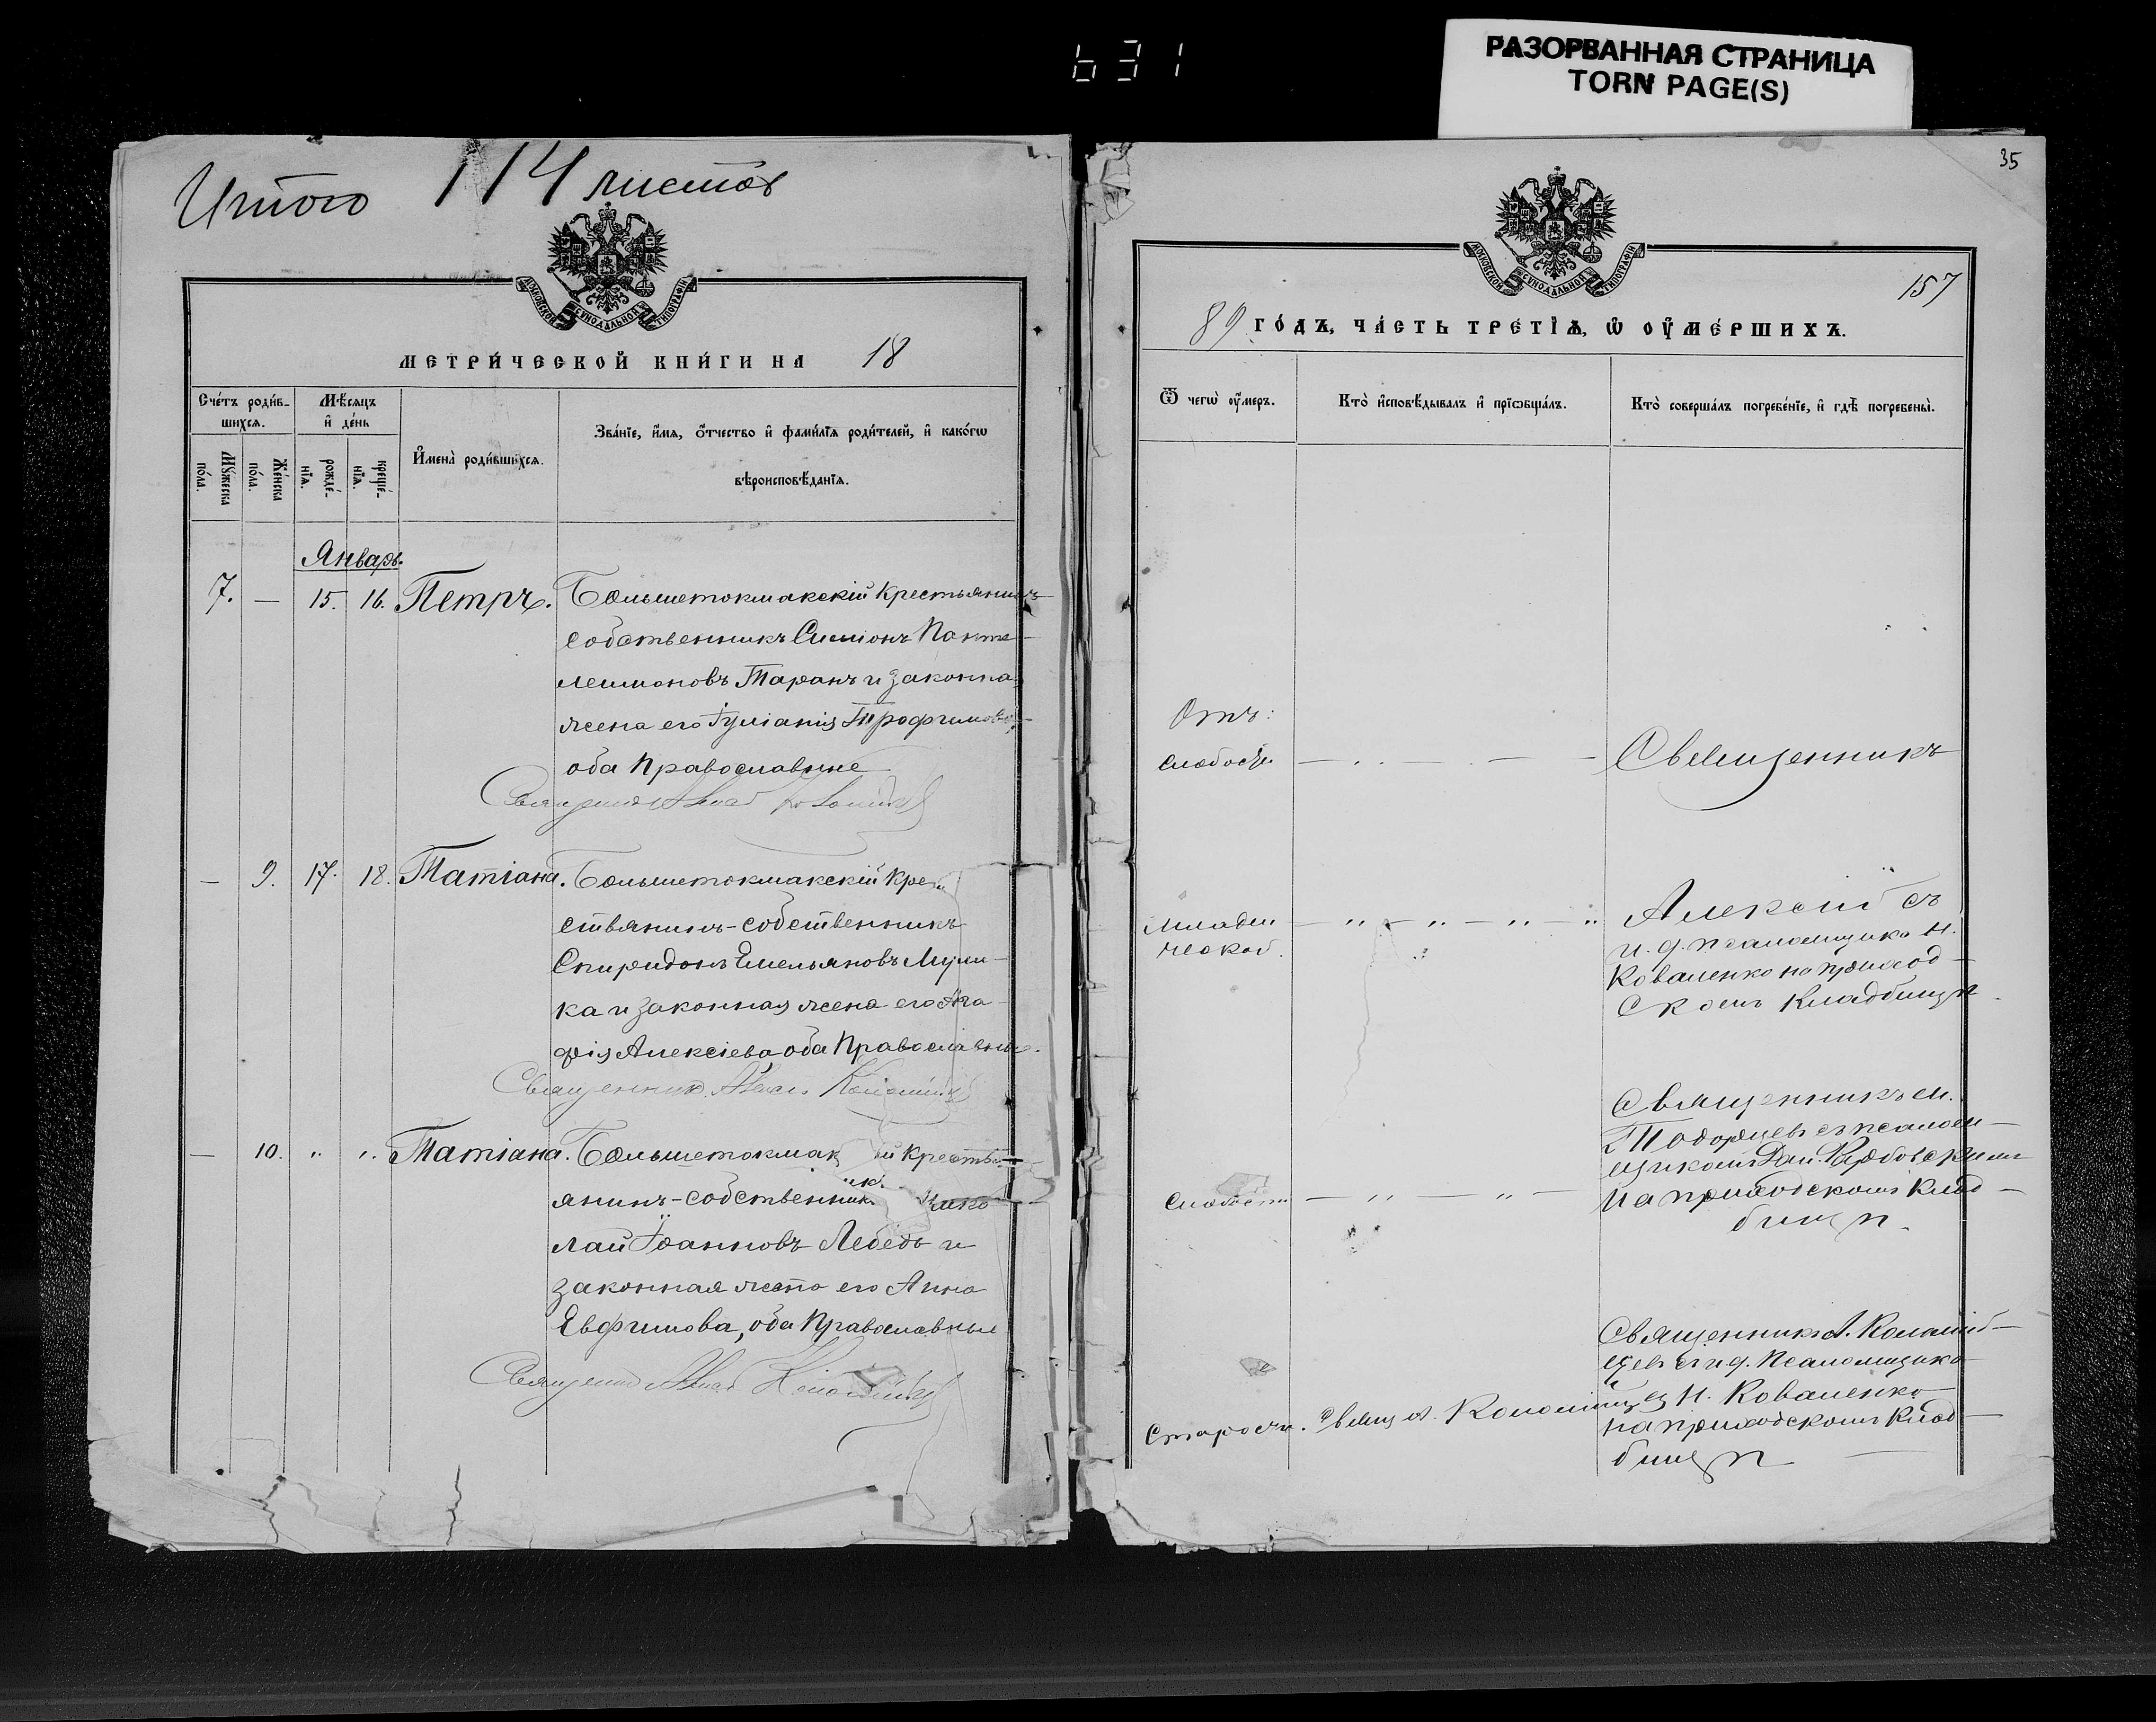 631
РАЗОРВАННАЯ СТРАНИЦА
TORN PAGE(S)
Итого 114 листов
МОСКОВСКОЙ СѴНОДАЛЬНОЙ ТИПОГРАФІИ
МЕТРИ́ЧЕСКОЙ КНИ́ГИ НА 18
Сче́тъ роди́в-
шихся.
Мѣ́сяцъ
и҆ де́нь
Мꙋ́жеска
по́ла.
Же́нска
по́ла.
рожде́-
нїя.
креще́-
нїя.
И҆мена̀ роди́вшихся.
Зва́нїе, и҆́мя, ѻ҆́тчество и҆ фами́лїя роди́телей, и҆ како́гѡ
вѣроисповѣ́данїя.
Январь.
7. — 15. 16. Петръ. Большетокмакскій Крестьянинъ
собственникъ Симіонъ Панте-
леимоновъ Таранъ и законная
жена его Іуліанія Трофимова,
оба Православные
Священникъ
— 9. 17. 18. Татіана. Большетокмакскій Кре-
стьянинъ-собственникъ
Спиридонъ Емельяновъ
ка и законная жена его Ага-
фія Алексіева оба Православные.
Священник
— 10. " " Татіана. Большетокмак ій Кресть-
янинъ-собственник Нико
лай Іоанновъ Лебедь и
законная жена его Анна
Евфимова, оба Православные
Священник
35
МОСКОВСКОЙ СѴНОДАЛЬНОЙ ТИПОГРАФІИ
157
89 ГО́ДЪ, ЧА́СТЬ ТРЕ́ТЇЯ, Ѡ҆ ОУ҆МЕ́РШИХЪ.
Ѿ чегѡ̀ оу҆́меръ.
Кто̀ и҆сповѣ́дывалъ и҆ прїѡбща́лъ.
Кто̀ соверша́лъ погребе́нїе, и҆ гдѣ̀ погребены̀.
Отъ:
слабости — — — Священникъ
младен — " — " — " — " Алексій съ
ческой.
и. д. псаломщика Н.
Коваленко на приход-
скомъ Кладбищѣ.
Священникъ
съ псалом-
щикомъ
Слабости — " — " — На приходскомъ Клад-
бищѣ.
Священникъ А. Коломій-
цевъ съ и д. Псаломщика
Н. Коваленко
Старости. Свящ А. Коломійцевъ на приходскомъ Клад-
бищѣ